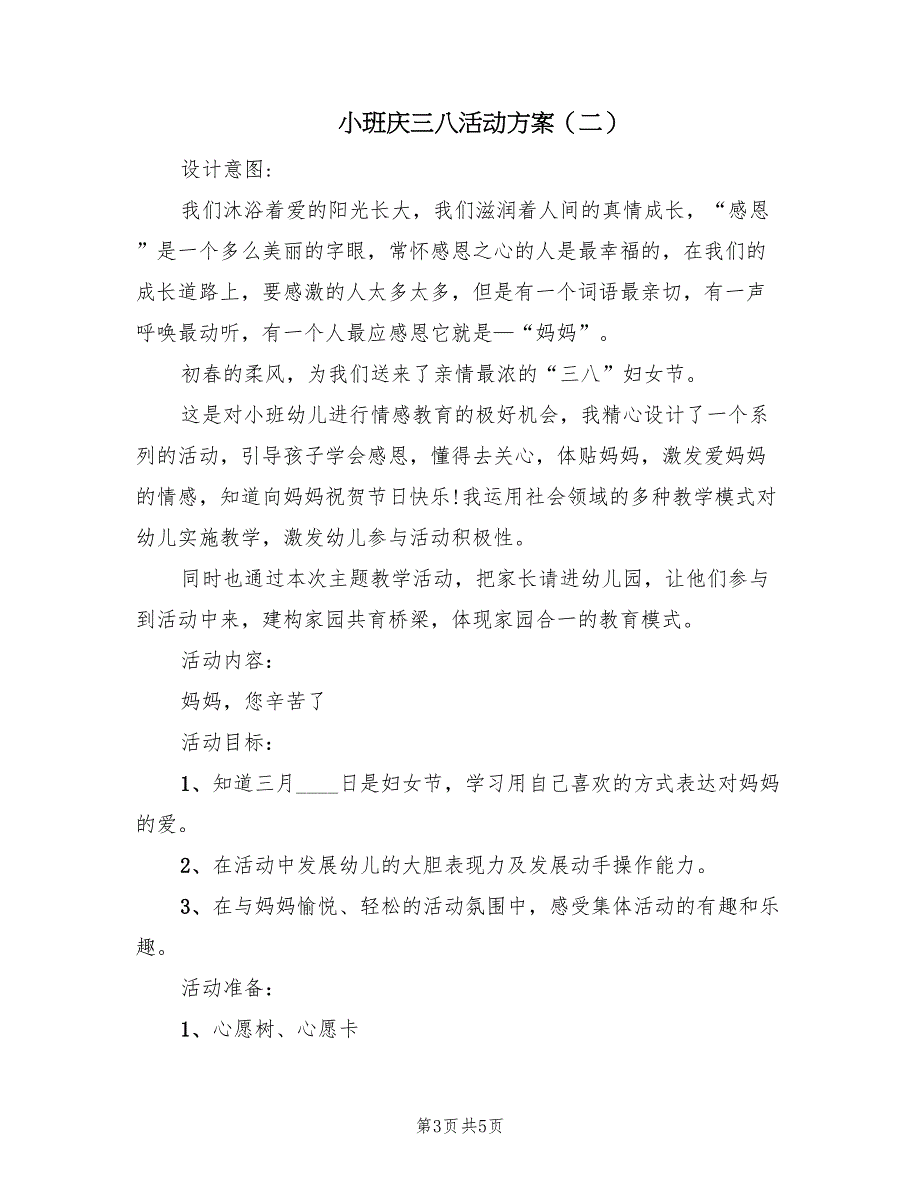 小班庆三八活动方案（二）
设计意图：
我们沐浴着爱的阳光长大，我们滋润着人间的真情成长，“感恩
”是一个多么美丽的字眼，常怀感恩之心的人是最幸福的，在我们的
成长道路上，要感激的人太多太多，但是有一个词语最亲切，有一声
呼唤最动听，有一个人最应感恩它就是—“妈妈”。
初春的柔风，为我们送来了亲情最浓的“三八”妇女节。
这是对小班幼儿进行情感教育的极好机会，我精心设计了一个系
列的活动，引导孩子学会感恩，懂得去关心，体贴妈妈，激发爱妈妈
的情感，知道向妈妈祝贺节日快乐!我运用社会领域的多种教学模式对
幼儿实施教学，激发幼儿参与活动积极性。
同时也通过本次主题教学活动，把家长请进幼儿园，让他们参与
到活动中来，建构家园共育桥梁，体现家园合一的教育模式。
活动内容：
妈妈，您辛苦了
活动目标：
1、知道三月____日是妇女节，学习用自己喜欢的方式表达对妈妈
的爱。
2、在活动中发展幼儿的大胆表现力及发展动手操作能力。
3、在与妈妈愉悦、轻松的活动氛围中，感受集体活动的有趣和乐
趣。
活动准备：
1、心愿树、心愿卡
第3页共5页